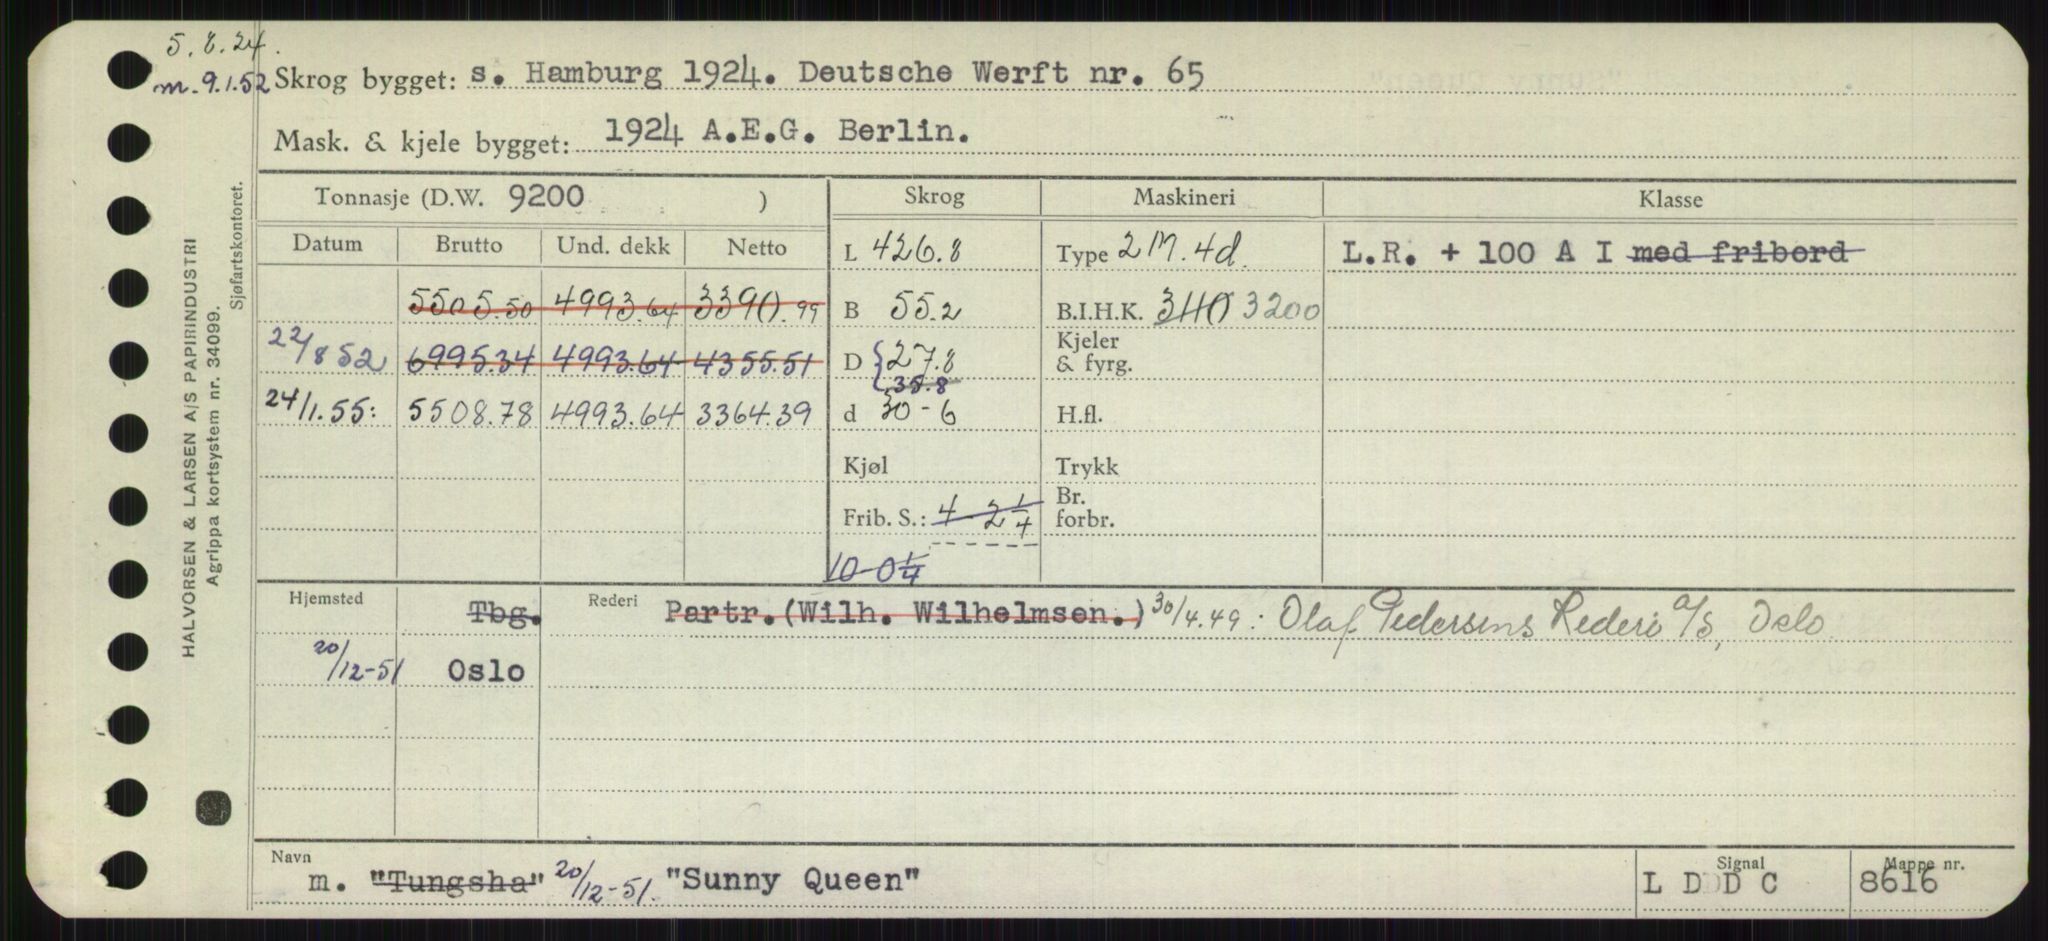 5.8.24.
m. 9.1.52 Skrog bygget: s. Hamburg 1924. Deutsche Werft nr. 65
Mask. & kjele bygget: 1924 A.E.G. Berlin.
HALVORSEN & LARSEN A/S PAPIRINDUSTRI
Agrippa kortsystem nr. 34099.
Sjøfartskontoret.
Tonnasje (D.W. 9200 ) Skrog Maskineri Klasse
Datum Brutto Und. dekk Netto L 426.8 Type 2M. 4d. L.R. + 100 A I med fribord
5505.50 4993.64 3390.99 B 55.2 B.I.H.K. 3110 3200
22/8 52 6995.34 4993.64 4355.51 D 27.8 Kjeler & fyrg.
35.8
24/1.55: 5508.78 4993.64 3364.39 d 30-6 H.fl.
Kjøl Trykk
Frib. S.: 4 - 2 1/4 Br. forbr.
10-0 1/4
Hjemsted Tbg. Rederi Partr. (Wilh. Wilhelmsen.) 30/4.49: Olaf Pedersens Rederi A/S, Oslo
20/12-51 Oslo
Navn m. "Tungsha" 20/12-51. "Sunny Queen" Signal L D D C Mappe nr. 8616